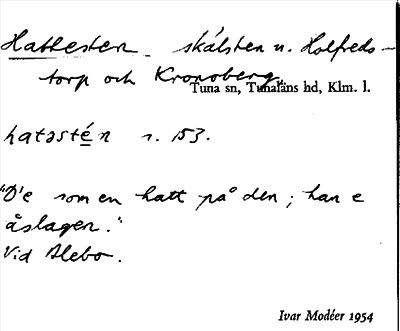 Hattesten. skålsten n. Holfreds-
torp och Kronoberg.
Tuna sn, Tunaläns hd, Klm. l.
hatəstén s. 153.
"D'e som en hatt på den; han e
åslagen."
Vid Alebo.
Ivar Modéer 1954